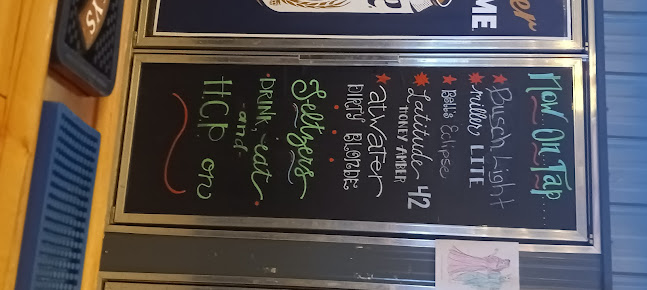 er
ME
YS
Now On Tap....
Busch Light
Miller LITE
Bell's Eclipse
Latitude 42
HONEY AMBER
atwater
DIRTY BLONDE
Seltzers
DRINK, eat
-and-
H.C.P on